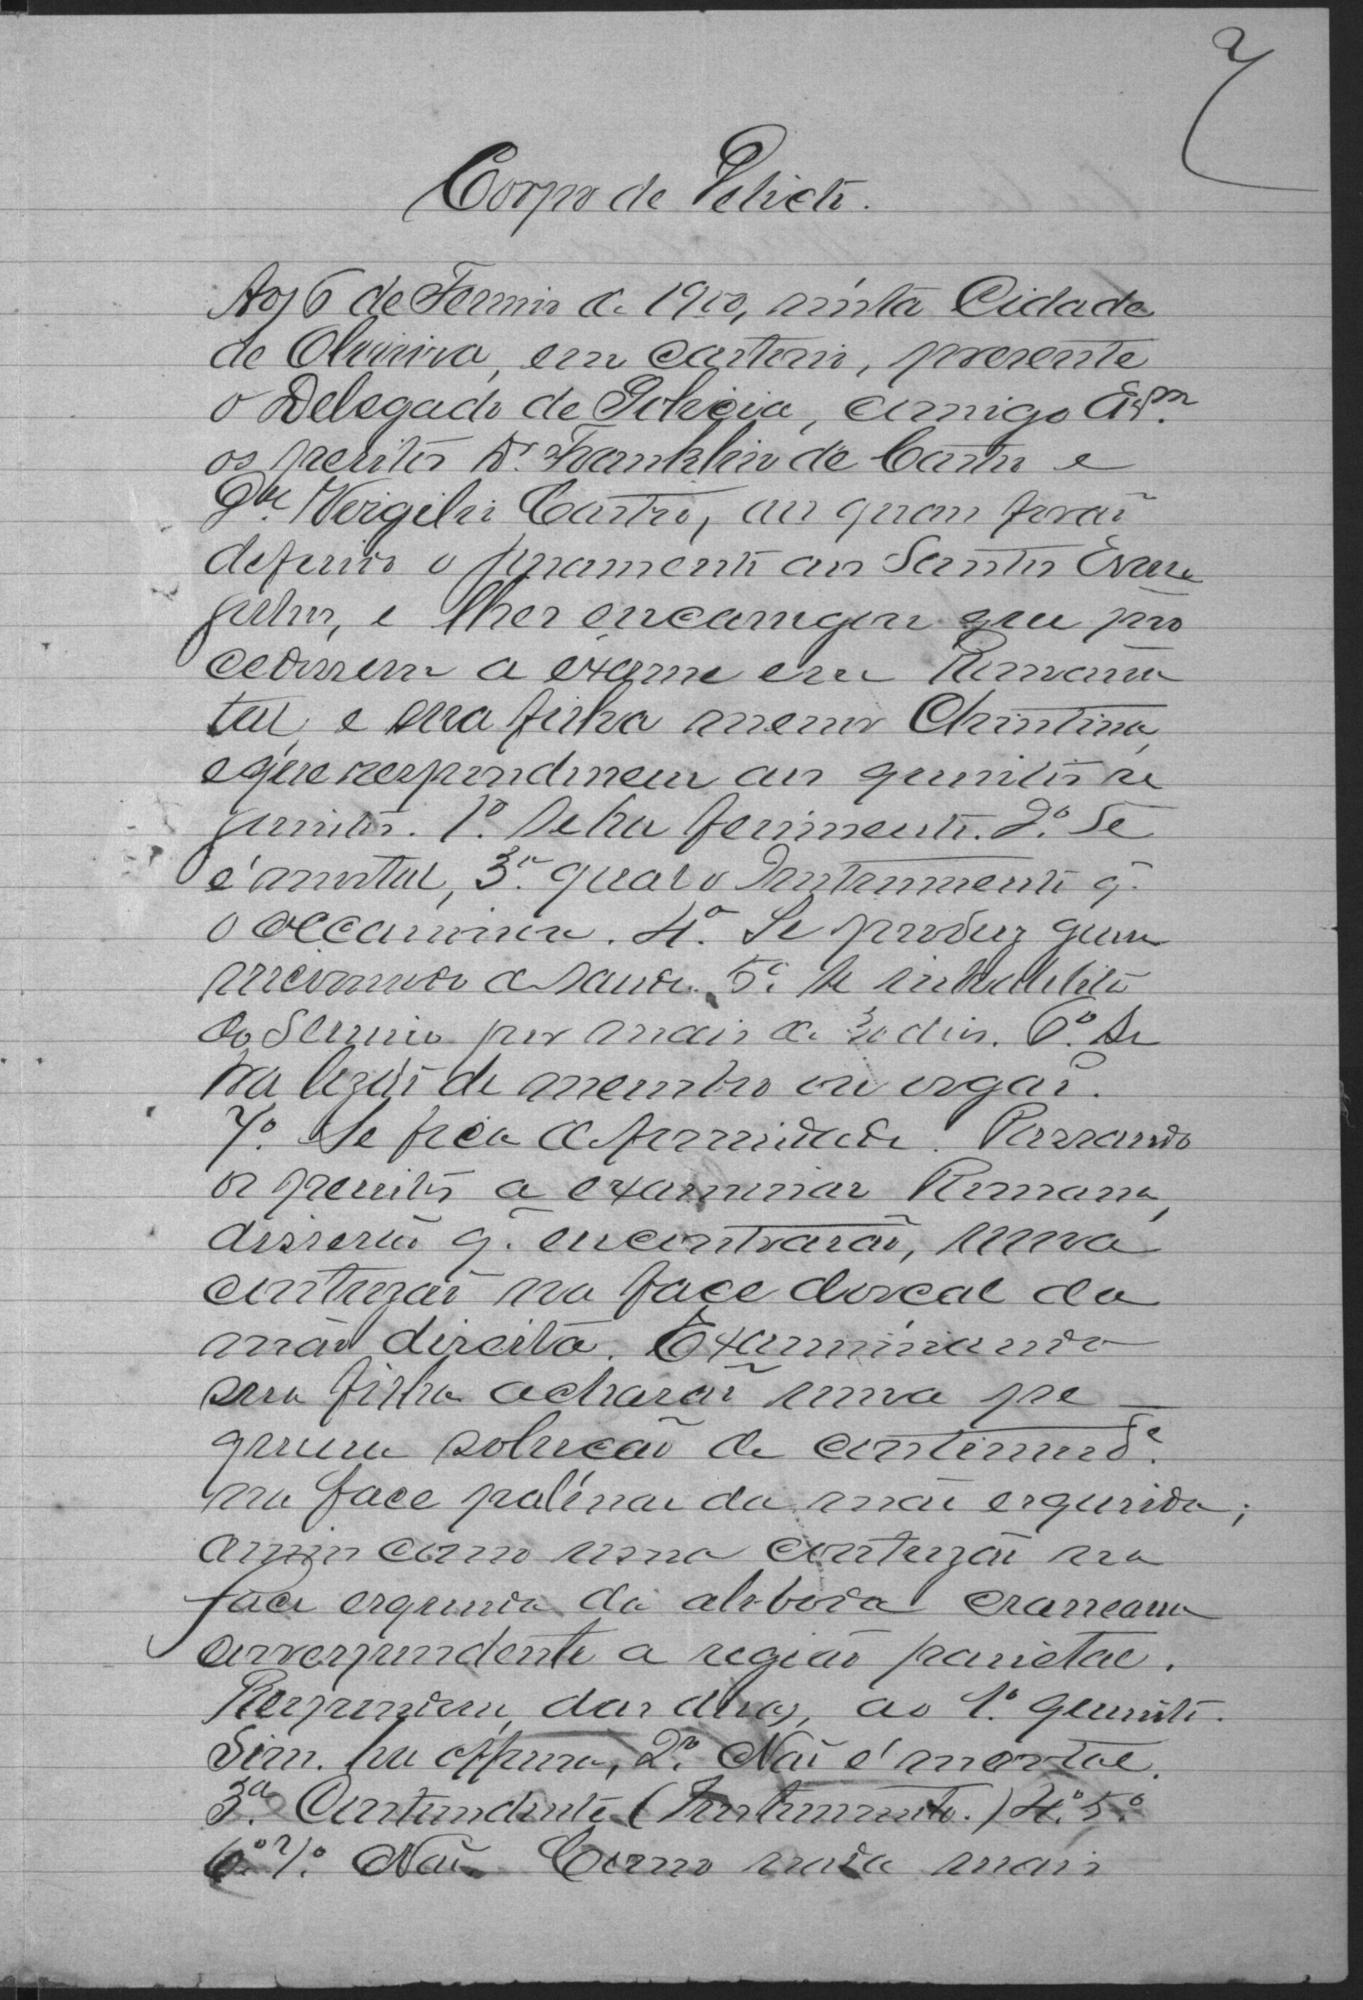 2
Corpo de Delicto.
Aos 6 de Fevereiro de 1900, nesta Cidade
de Oliveira, em cartorio, presente
o Delegado de Policia, comigo Esm.
os peritos Dr. Franklin de Castro e
Phc. Virgilio Castro, aos quaes foraõ
deferido o juramento aos Santos Evan
gelhos, e lhes encarregou que pro
cedessem a exame em Romana
tal, e sua filha menor Christina,
e que respondessem aos quesitos se
guintes. 1º. Se ha ferimento. 2º. Se
é mortal, 3º. qual o Instrumento q.
o occasionou. 4º. Se produz grave
incommodo de saude. 5º. Se inhabilita
do Serviço por mais de 30 dias. 6º. Se
ha lezaõ de membro ou orgaõ.
7º. Se fica deformidade. Passando
os peritos a examinar Romana,
disseraõ q. encontraraõ, uma
contuzaõ na face dorcal da
maõ direita. Examinando
sua filha acharaõ uma pe
quena solucaõ de continuide.
na face palmar da maõ esquerda;
assim como uma contuzaõ na
face esquerda da aboboda craneana
correspondente a regiaõ parietal.
Respondem, das duas, ao 1º. quesito.
Sim. ha offensa, 2º. Naõ é mortal.
3º. Contundente (Instrumento.) 4º. 5º.
6º. 7º. Naõ. Como nada mais